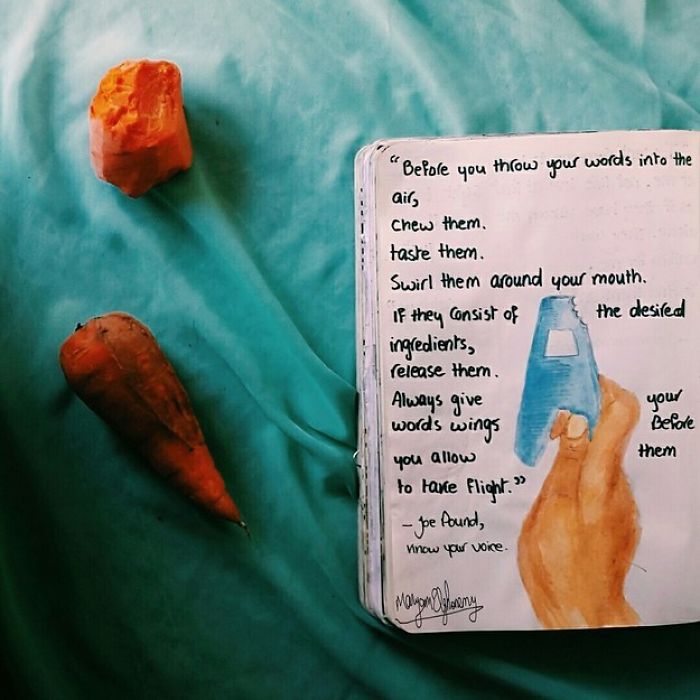 "Before you throw your words into the
air,
Chew them.
taste them.
Swirl them around your mouth.
IF they Consist of the desired
ingredients,
release them.
Always give your
words wings Before
you allow them
to take Flight."
- Joe Pound,
know your voice.